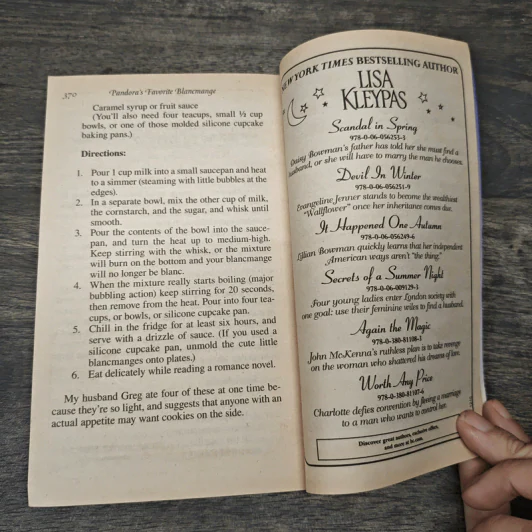 370
Pandora's Favorite Blancmange
Caramel syrup or fruit sauce
(You'll also need four teacups, small ½ cup
bowls, or one of those molded silicone cupcake
baking pans.)
Directions:
1. Pour 1 cup milk into a small saucepan and heat
to a simmer (steaming with little bubbles at the
edges).
2. In a separate bowl, mix the other cup of milk,
the cornstarch, and the sugar, and whisk until
smooth.
3. Pour the contents of the bowl into the sauce-
pan, and turn the heat up to medium-high.
Keep stirring with the whisk, or the mixture
will burn on the bottom and your blancmange
will no longer be blanc.
4. When the mixture really starts boiling (major
bubbling action) keep stirring for 20 seconds,
then remove from the heat. Pour into four tea-
cups, or bowls, or silicone cupcake pan.
5. Chill in the fridge for at least six hours, and
serve with a drizzle of sauce. (If you used a
silicone cupcake pan, unmold the cute little
blancmanges onto plates.)
6. Eat delicately while reading a romance novel.
My husband Greg ate four of these at one time be-
cause they're so light, and suggests that anyone with an
actual appetite may want cookies on the side.
NEW YORK TIMES BESTSELLING AUTHOR
LISA
KLEYPAS
Scandal in Spring
978-0-06-056253-3
Daisy Bowman's father has told her she must find a
husband, or she will have to marry the man he chooses.
Devil In Winter
978-0-06-056251-9
Evangeline Jenner stands to become the wealthiest
"Wallflower" once her inheritance comes due.
It Happened One Autumn
978-0-06-056249-6
Lillian Bowman quickly learns that her independent
American ways aren't "the thing."
Secrets of a Summer Night
978-0-06-009129-3
Four young ladies enter London society with
one goal: use their feminine wiles to find a husband.
Again the Magic
978-0-380-81108-3
John McKenna's ruthless plan is to take revenge
on the woman who shattered his dreams of love.
Worth Any Price
978-0-380-81107-6
Charlotte defies convention by fleeing a marriage
to a man who wants to control her.
Discover great authors, exclusive offers,
and more at hc.com.